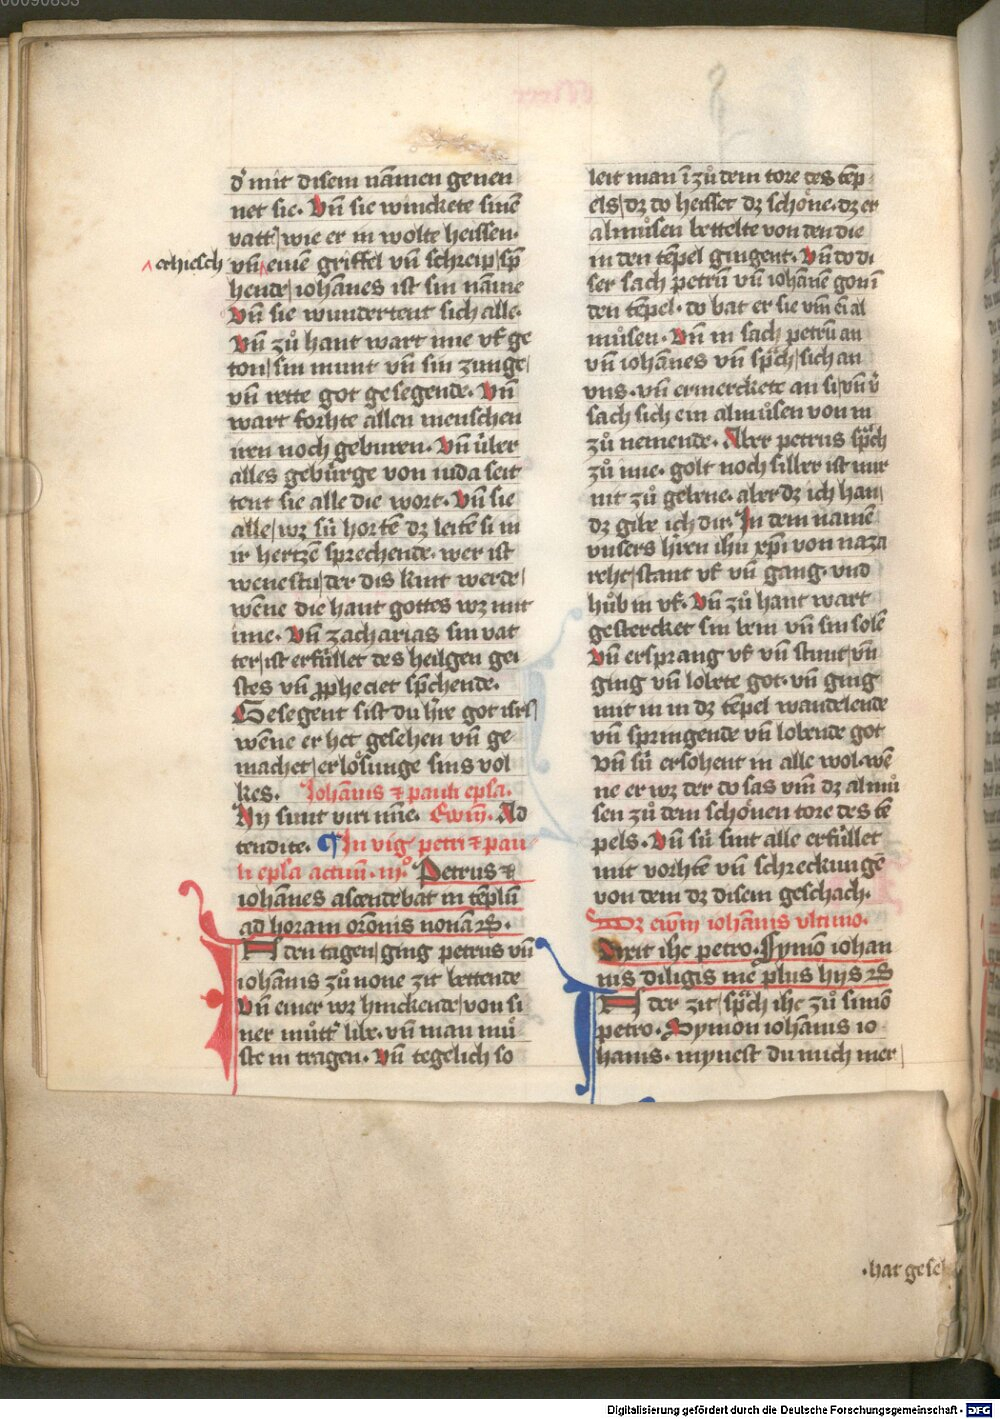 00090853
d᷑ mit disem nammen genen
net sie. Vn̄ sie winckete sinē
vatt᷑ wie er in wolte heissen.
erhiesch vn̄ einē griffel vn̄ schreip sp̄
hende iohānes ist sin name
Vn̄ sie wundertent sich alle.
Vn̄ zů hant wart ime vf ge
ton sin munt vn̄ sin zunge
vn̄ rette got gesegende. Vn̄
wart forhte allen menschen
iren noch geburen. Vn̄ über
alles gebürge von iuda seit
tent sie alle die wort. Vn̄ sie
alle wz sü hortē dz leitē si in
ir hertzē sprechende. wer ist
wenestu der dis kint werde
wēne die hant gottes wz mit
ime. Vn̄ zacharias sin vat
ter ist erfüllet des heilgen gei
stes vn̄ ꝓpheciet sp̄chende.
Gesegent sist du h̄re got isrl
wēne er het gesehen vn̄ ge
machet erlösunge sins vol
kes. Johānis ⁊ pauli ep̄la.
Hij sunt viri mīe. Ewm̄. Ad
tendite. ¶ In vig᷑ petri ⁊ pau
li ep̄la actuū. iijͦ. Petrus ⁊
iohānes ascendebāt in tēplū
ad horam orōnis nonā R̄.
In den tagen ging petrus vn̄
iohānis zů none zit bettende
Vn̄ einer wz hinckende von si
ner mütt᷑ libe. vn̄ man mů
ste in tragen. Vn̄ tegelich so
leit man ī zů dem tore des tēp
els dz do heisset dz schöne. dz er
almůsen bettelte von den die
in den tēpel gingent. Vn̄ do di
ser sach petrū vn̄ iohānē gon ī
den tēpel. do bat er sie vm̄ ei al
můsen. Vn̄ in sach petrū an
vn̄ iohānes vn̄ sp̄ch sich an
vns. vn̄ er merckete an si vn̄ v᷑
sach sich ein almůsen von in
zů nemende. Aber petrus sp̄ch
zů ime. golt noch silber ist mir
nit zů gebene. aber dz ich han
dz gibe ich dir. In dem namē
vnsers h̄ren ih̄u xp̄i von naza
reht stant vf vn̄ gang. vnd
hůb in vf. Vn̄ zů hant wart
gestercket sin bein vn̄ sin solē
Vn̄ ersprang vf vn̄ stunt vn̄
ging vn̄ lobete got. vn̄ ging
mit in in dz tēpel wandelende
vn̄ springende vn̄ lobende got
Vn̄ sü ersohent in alle wol. wē
ne er wz der do sas vm̄ dz almů
sen zů dem schönen tore des tē
pels. Vn̄ sü sint alle erfüllet
mit vorhtē vn̄ schreckungē
von dem dz disem geschach.
Dz ewm̄ iohānis vltimo.
Dixit ih̄c petro. Symō iohan
nis diligis me plus hijs R̄
In der zit sp̄ch ih̄c zů simō
petro. Symon iohānis io
hanis. mynest du mich mer
.hat gese
Digitalisierung gefördert durch die Deutsche Forschungsgemeinschaft - DFG